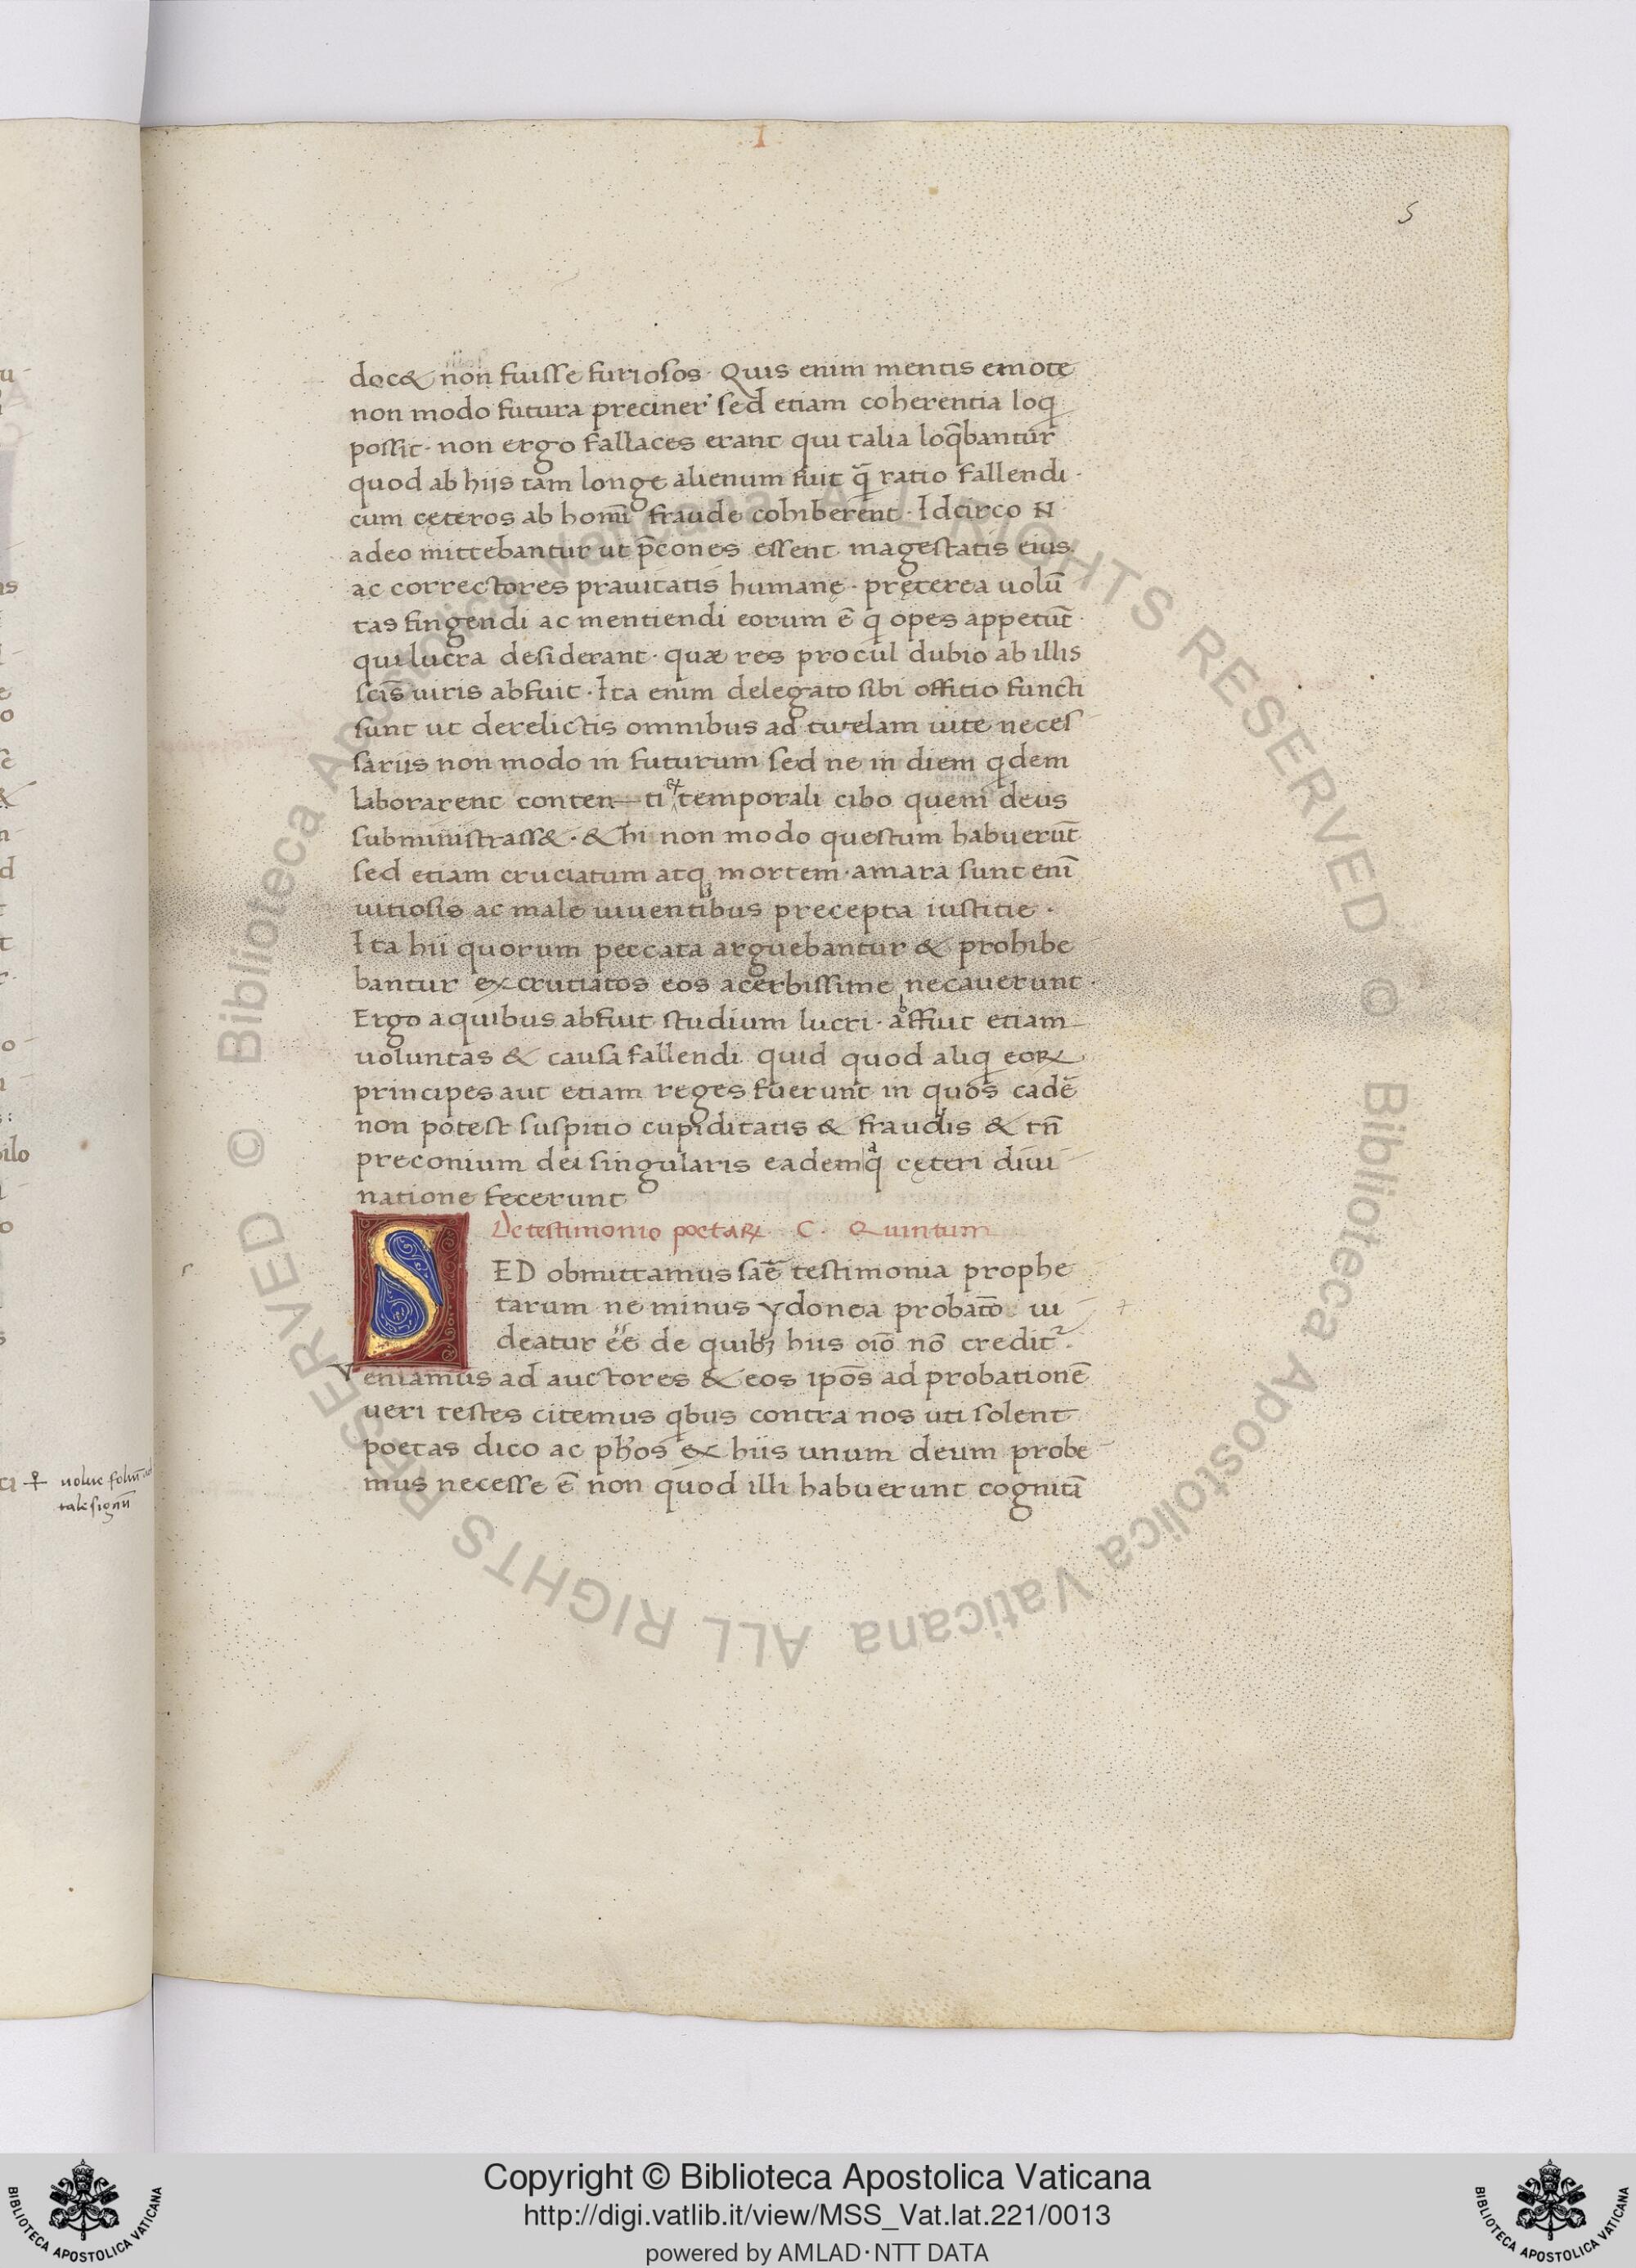 I
5
doc& non fuisse furiosos · Quis enim mentis emotę
non modo futura preciner' sed etiam coherentia loq
possit · non ergo fallaces erant qui talia loq̄bantur
quod ab hijs tam longe alienum fuit q̄ ratio fallendi ·
cum cęteros ab homī fraude cohiberent · Idcirco N
adeo mittebantur ut p̄cones essent magestatis eius
ac correctores prauitatis humanę · pręterea uolū
tas fingendi ac mentiendi eorum ē q opes appetūt ·
qui lucra desiderant · quæ res procul dubio ab illis
sc̄is uiris abfuit · Ita enim delegato sibi offitio functi
sunt ut derelictis omnibus ad tutelam uite neces
sariis non modo in futurum sed ne in diem qdem
laborarent conten—ti & temporali cibo quem deus
subministrass& · & hi non modo questum habuerūt
sed etiam cruciatum atq; mortem · amara sunt enī
uitiosis ac male uiuentibus precepta iustitie ·
Ita hii quorum peccata arguebantur & prohibe
bantur excrutiatos eos acerbissime necauerunt ·
Ergo a quibus abfuit studium lucri · abfuit etiam
uoluntas & causa fallendi quid quod aliq eoꝝ
principes aut etiam reges fuerunt in quos cadē
non potest suspitio cupiditatis & fraudis & tn̄
preconium dei singularis eadem qª cęteri diui
natione fecerunt
De testimonio poetaꝝ · C · Quintum
SED obmittamus saē testimonia prophe
tarum ne minus ydonea probatō ui
deatur eē de quibꝫ hiis oīo nō creditᷣ ·
Veniamus ad auctores & eos ipōs ad probationē
ueri testes citemus qbus contra nos uti solent
poetas dico ac ph̄os ex hiis unum deum probe
mus necesse ē non quod illi habuerunt cognitā
uolue foliū ad
tale signū
© Biblioteca Apostolica Vaticana ALL RIGHTS RESERVED © Biblioteca Apostolica Vaticana ALL RIGHTS RESERVED
BIBLIOTECA APOSTOLICA VATICANA
Copyright © Biblioteca Apostolica Vaticana
http://digi.vatlib.it/view/MSS_Vat.lat.221/0013
powered by AMLAD·NTT DATA
BIBLIOTECA APOSTOLICA VATICANA